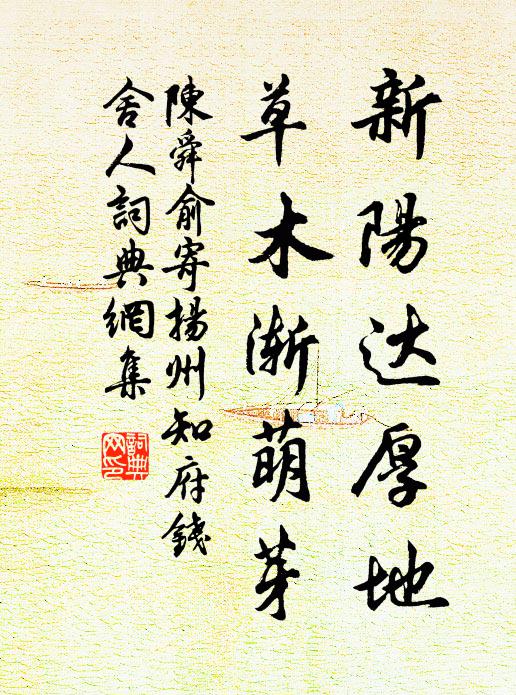 新陽达厚地
草木渐萌芽
陳舜俞寄揚州知府錢
舍人詞典網集
詞典网印